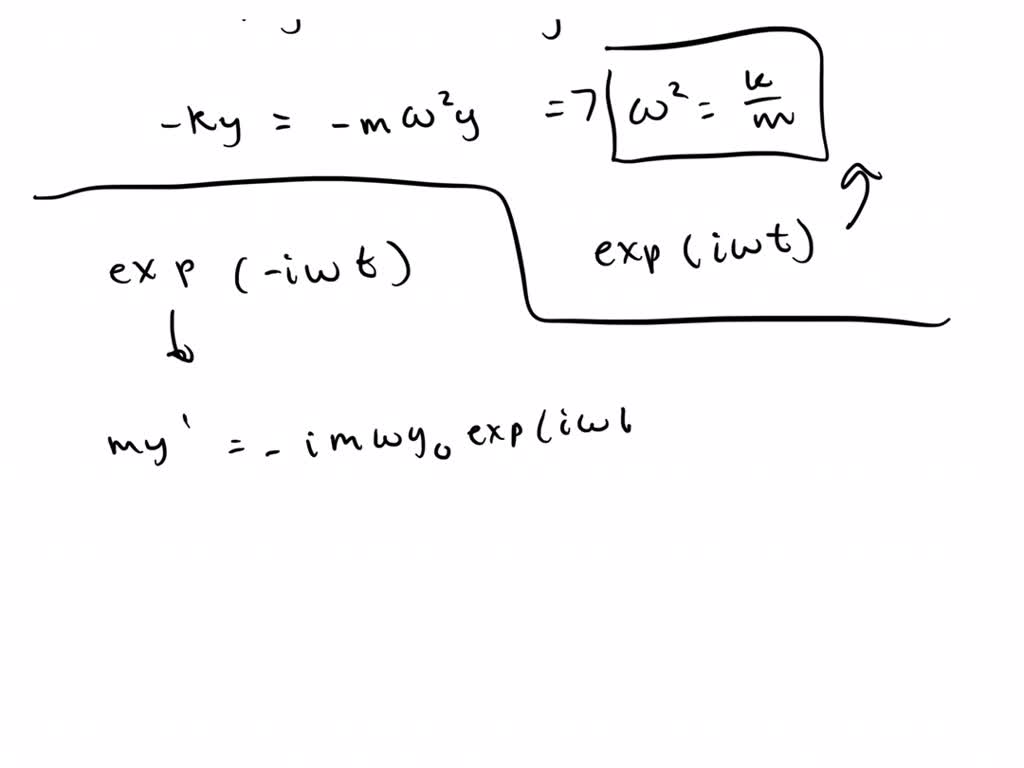 -ky = -mω²y => ω² = k/m
exp (iωt)
exp (-iωt)
my' = -imωy₀ exp(iω